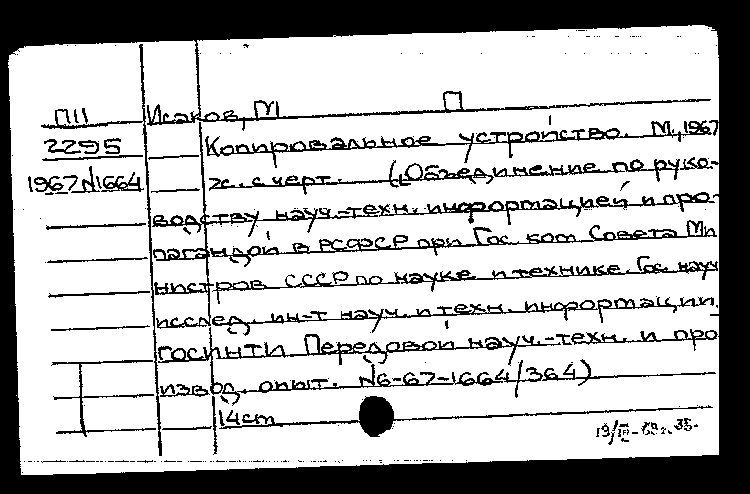 П11 Исаков, М П
2295 Копировальное устройство. М., 1967
1967 N1664 ж. с черт. (Объединение по руко-
водству науч.-техн. информацией и про-
пагандой в РСФСР при Гос. ком. Совета Ми
нистров СССР по науке и технике. Гос. науч
исслед. ин-т науч. и техн. информации.
ГОСИНТИ. Передовой науч.-техн. и про
извод. опыт. N6-67-1664/364)
14 cm
19/III-69г.